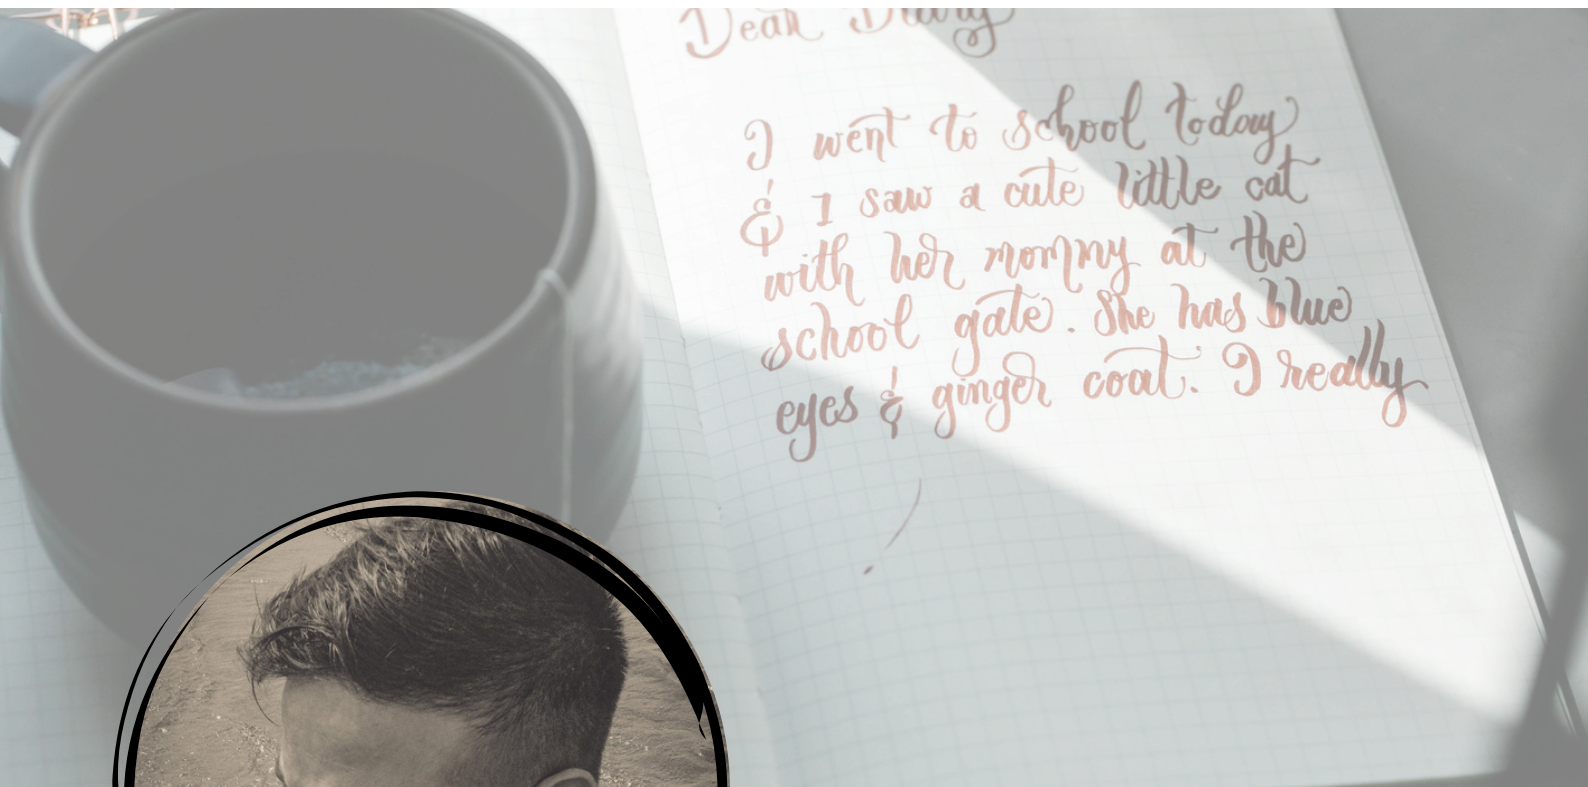 Dear Diary
I went to school today
& I saw a cute little cat
with her mommy at the
school gate. She has blue
eyes & ginger coat. I really